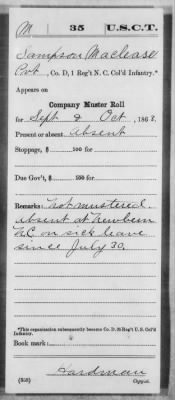 M 35 U.S.C.T.
Sampson Maclease
Pvt, Co. D, 1 Reg't N. C. Col'd Infantry.*
Appears on
Company Muster Roll
for Sept & Oct, 1863.
Present or absent Absent
Stoppage, $ 100 for
Due Gov't, $ 100 for
Remarks: Not mustered.
absent at Newbern
N.C. on sick leave
since July 30.
*This organization subsequently became Co. D, 35 Reg't U. S. Col'd
Infantry.
Book mark:
Hardman
(358) Copyist.